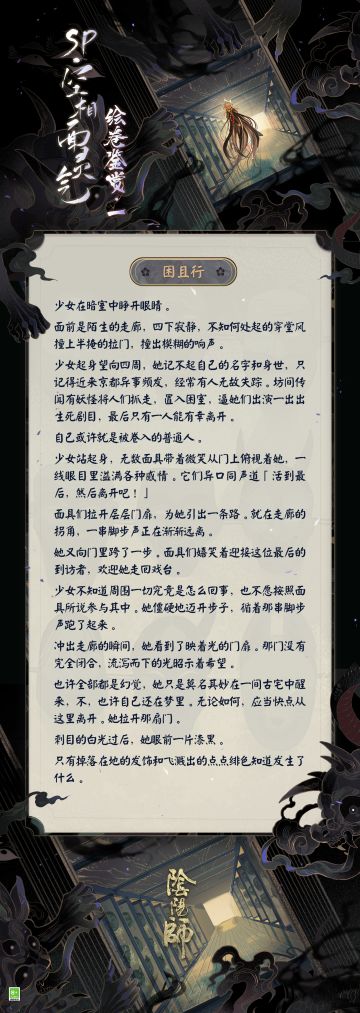 SP·空相面灵气
绘卷鉴赏·一
困且行
少女在暗室中睁开眼睛。
面前是陌生的走廊，四下寂静，不知何处起的穿堂风
撞上半掩的拉门，撞出模糊的响声。
少女起身望向四周，她记不起自己的名字和身世，只
记得近来京都异事频发，经常有人无故失踪。坊间传
闻有妖怪将人们抓走，置入困室，逼她们出演一出出
生死剧目，最后只有一人能有幸离开。
自己或许就是被卷入的普通人。
少女站起身，无数面具带着微笑从门上俯视着她，一
线眼目里溢满各种感情。它们异口同声道「活到最
后，然后离开吧！」
面具们拉开层层门扇，为她引出一条路。就在走廊的
拐角，一串脚步声正在渐渐远离。
她又向门里跨了一步。面具们嬉笑着迎接这位最后的
到访者，欢迎她走回戏台。
少女不知道周围一切究竟是怎么回事，也不愿按照面
具所说参与其中。她僵硬地迈开步子，循着那串脚步
声跑了起来。
冲出走廊的瞬间，她看到了映着光的门扇。那门没有
完全闭合，流泻而下的光昭示着希望。
也许全部都是幻觉，她只是莫名其妙在一间古宅中醒
来，不，也许自己还在梦里。无论如何，应当快点从
这里离开。她拉开那扇门。
刺目的白光过后，她眼前一片漆黑。
只有掉落在地的发饰和飞溅出的点点绯色知道发生了
什么。
陰陽師